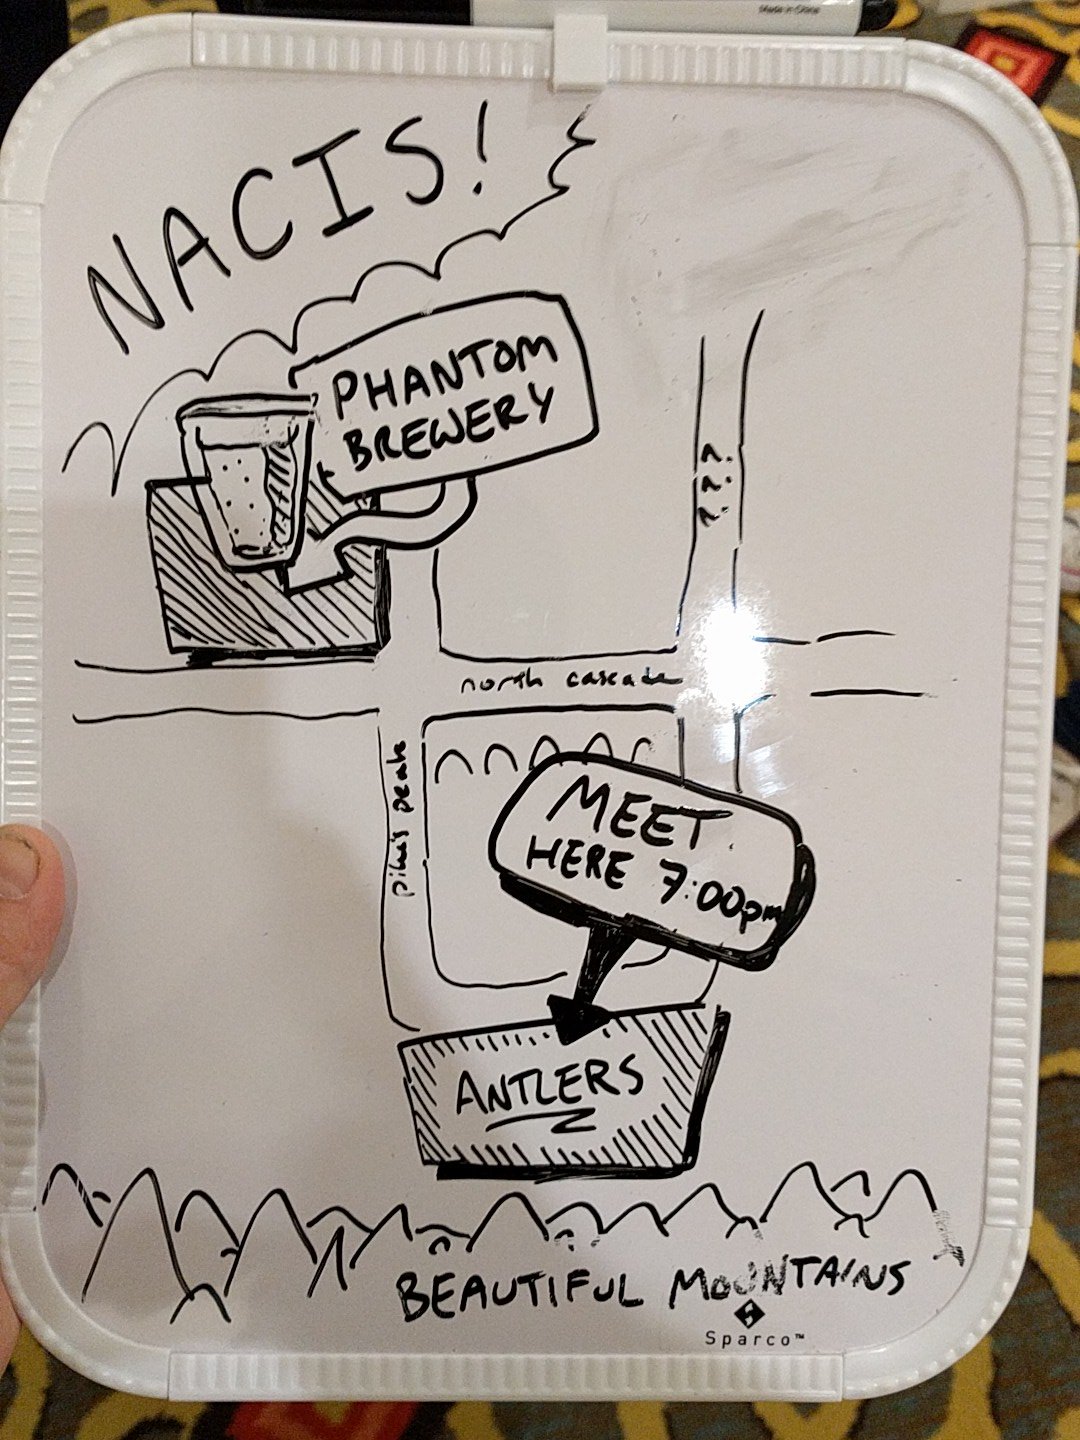 Made in China
NACIS!
PHANTOM
BREWERY
???
north cascade
pike's peak
MEET
HERE 7:00pm
ANTLERS
BEAUTIFUL MOUNTAINS
Sparco™